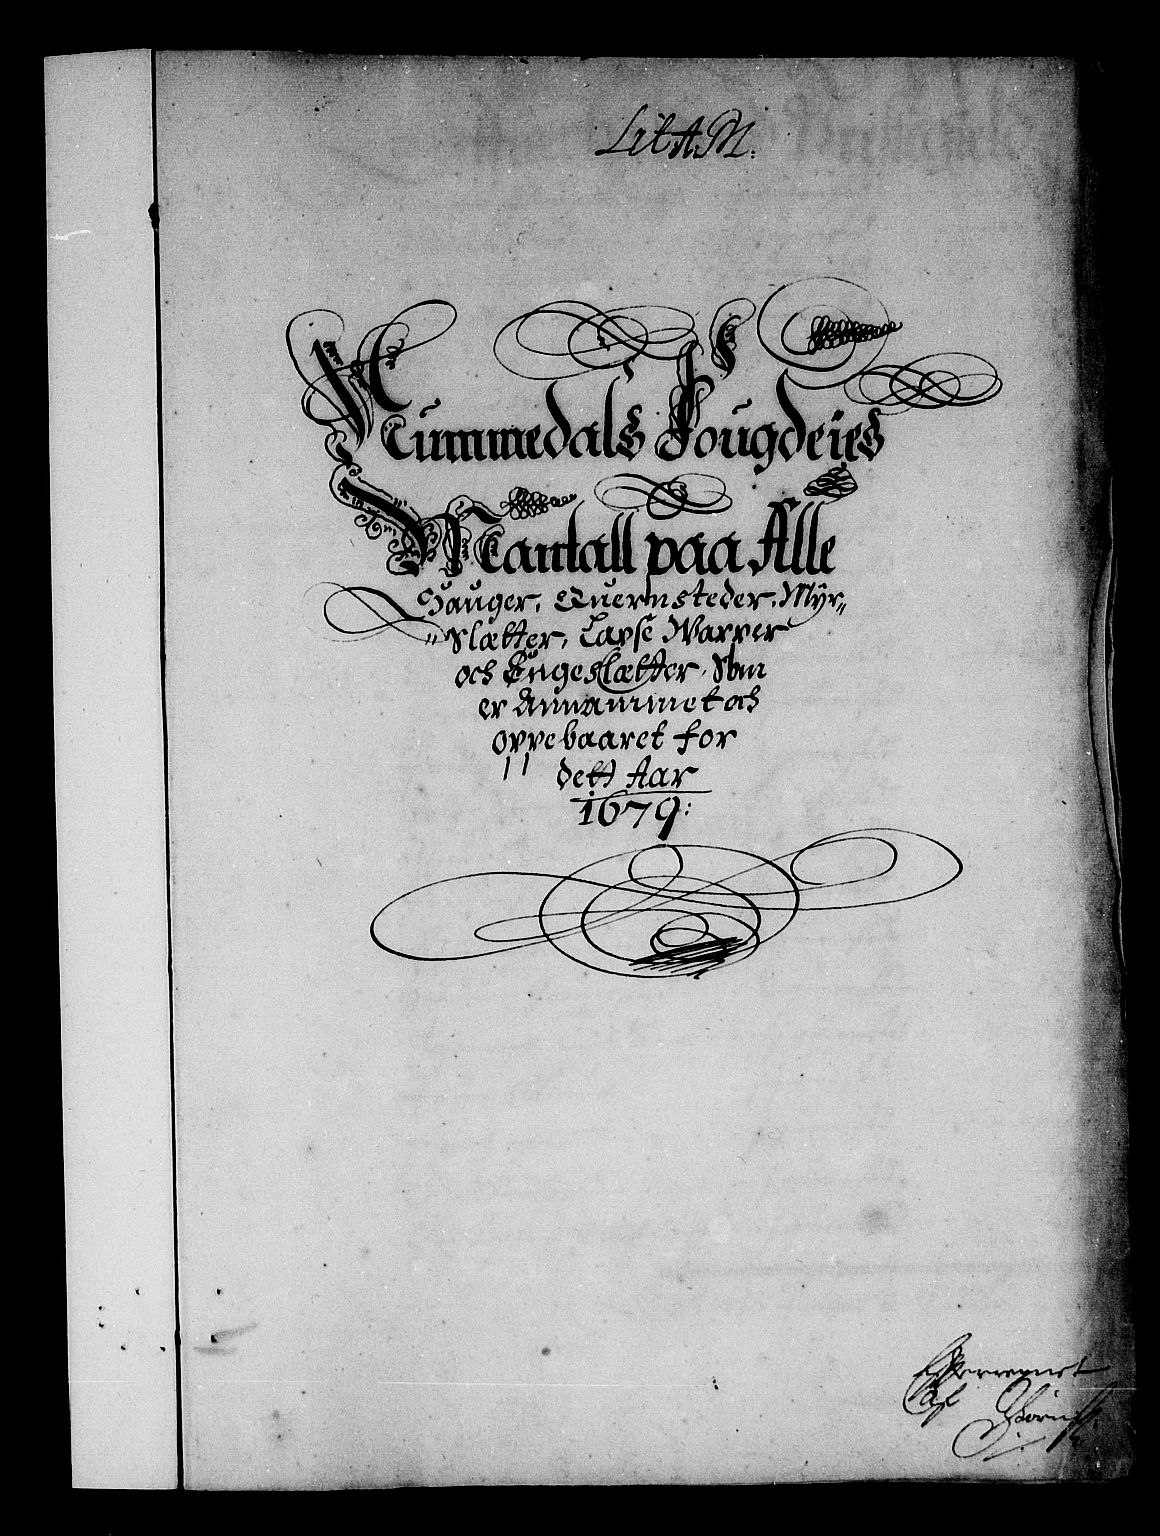 Lit A M:
Nummedals Fougderies
Mantall paa Alle
Hauger, Quernsteder, Myr„
„Slætter, Laxse Warper
och Engeslætter, Som
er Annammet och
oppebaaret for
dett Aar
1679: